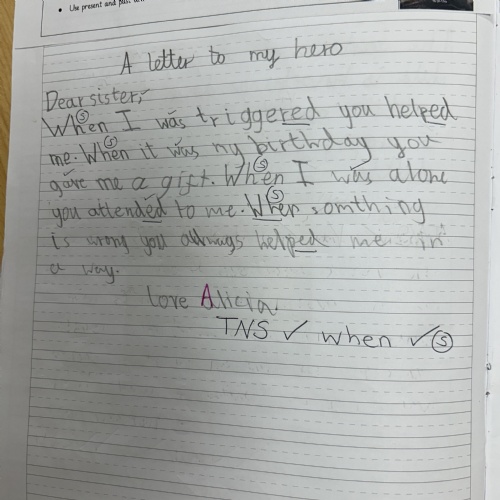 • Use present and past
A letter to my hero
Dear sister,
When I was triggered you helped
me. When it was my birthday you
gave me a gift. When I was alone
you attended to me. When somthing
is wrong you always helped me in
a way.
love Alicia
TNS ✓ when ✓ Ⓢ